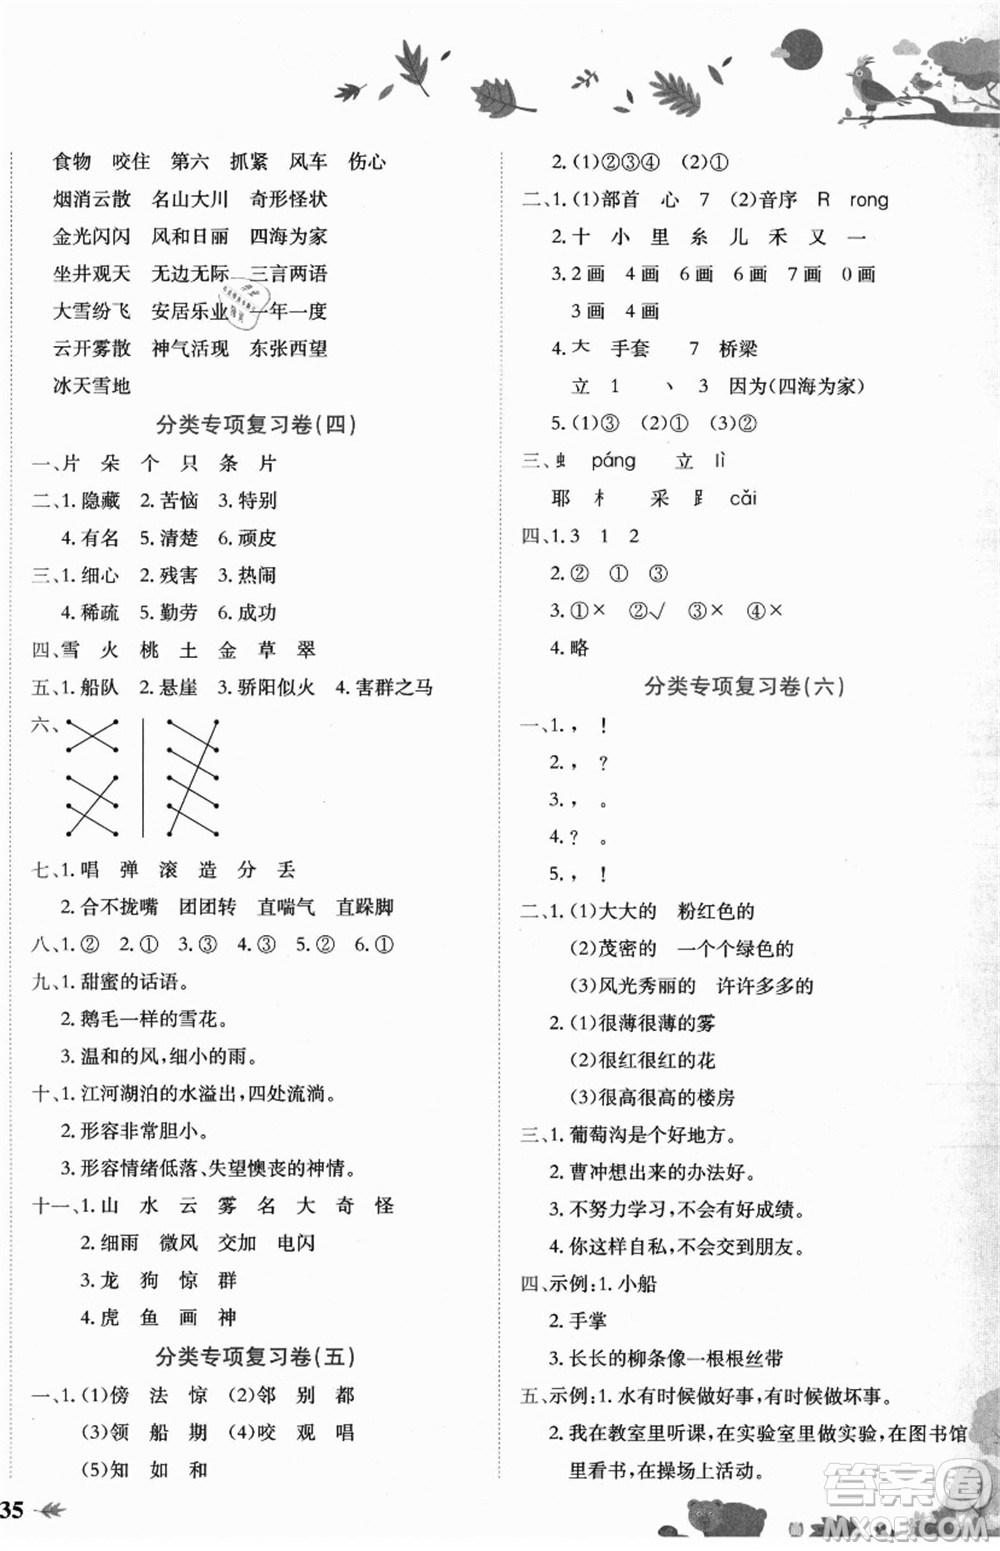 食物 咬住 第六 抓紧 风车 伤心
烟消云散 名山大川 奇形怪状
金光闪闪 风和日丽 四海为家
坐井观天 无边无际 三言两语
大雪纷飞 安居乐业 一年一度
云开雾散 神气活现 东张西望
冰天雪地
分类专项复习卷(四)
一、片 朵 个 只 条 片
二、1. 隐藏 2. 苦恼 3. 特别
4. 有名 5. 清楚 6. 顽皮
三、1. 细心 2. 残害 3. 热闹
4. 稀疏 5. 勤劳 6. 成功
四、雪 火 桃 土 金 草 翠
五、1. 船队 2. 悬崖 3. 骄阳似火 4. 害群之马
六、
七、1. 唱 弹 滚 造 分 丢
2. 合不拢嘴 团团转 直喘气 直跺脚
八、1. ② 2. ① 3. ③ 4. ③ 5. ② 6. ①
九、1. 甜蜜的话语。
2. 鹅毛一样的雪花。
3. 温和的风,细小的雨。
十、1. 江河湖泊的水溢出,四处流淌。
2. 形容非常胆小。
3. 形容情绪低落、失望懊丧的神情。
十一、1. 山 水 云 雾 名 大 奇 怪
2. 细雨 微风 交加 电闪
3. 龙 狗 惊 群
4. 虎 鱼 画 神
分类专项复习卷(五)
一、1. (1)傍 法 惊 (2)邻 别 都
(3)领 船 期 (4)咬 观 唱
(5)知 如 和
35
2. (1)②③④ (2)①
二、1. (1)部首 心 7 (2)音序 R rong
2. 十 小 里 糸 儿 禾 又 一
3. 2画 4画 6画 6画 7画 0画
3画 4画
4. 大 手套 7 桥梁
立 1 丶 3 因为(四海为家)
5. (1)③ (2)④ (3)②
三、虫 páng 立 lì
耶 木 采 𧾷 cǎi
四、1. 3 1 2
2. ② ① ③
3. ①× ②√ ③× ④×
4. 略
分类专项复习卷(六)
一、1. , !
2. , ?
3. , 。
4. ? 。
5. , !
二、1. (1)大大的 粉红色的
(2)茂密的 一个个绿色的
(3)风光秀丽的 许许多多的
2. (1)很薄很薄的雾
(2)很红很红的花
(3)很高很高的楼房
三、1. 葡萄沟是个好地方。
2. 曹冲想出来的办法好。
3. 不努力学习,不会有好成绩。
4. 你这样自私,不会交到朋友。
四、示例:1. 小船
2. 手掌
3. 长长的柳条像一根根丝带
五、示例:1. 水有时候做好事,有时候做坏事。
2. 我在教室里听课,在实验室里做实验,在图书馆
里看书,在操场上活动。
答案圈
MXQE.COM